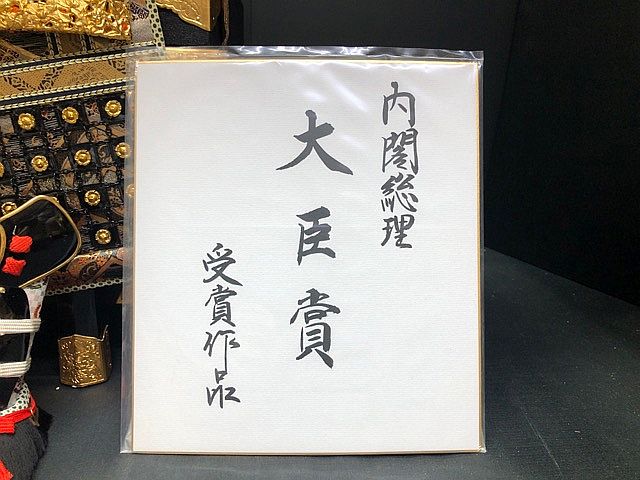 内閣総理
大臣賞
受賞作品